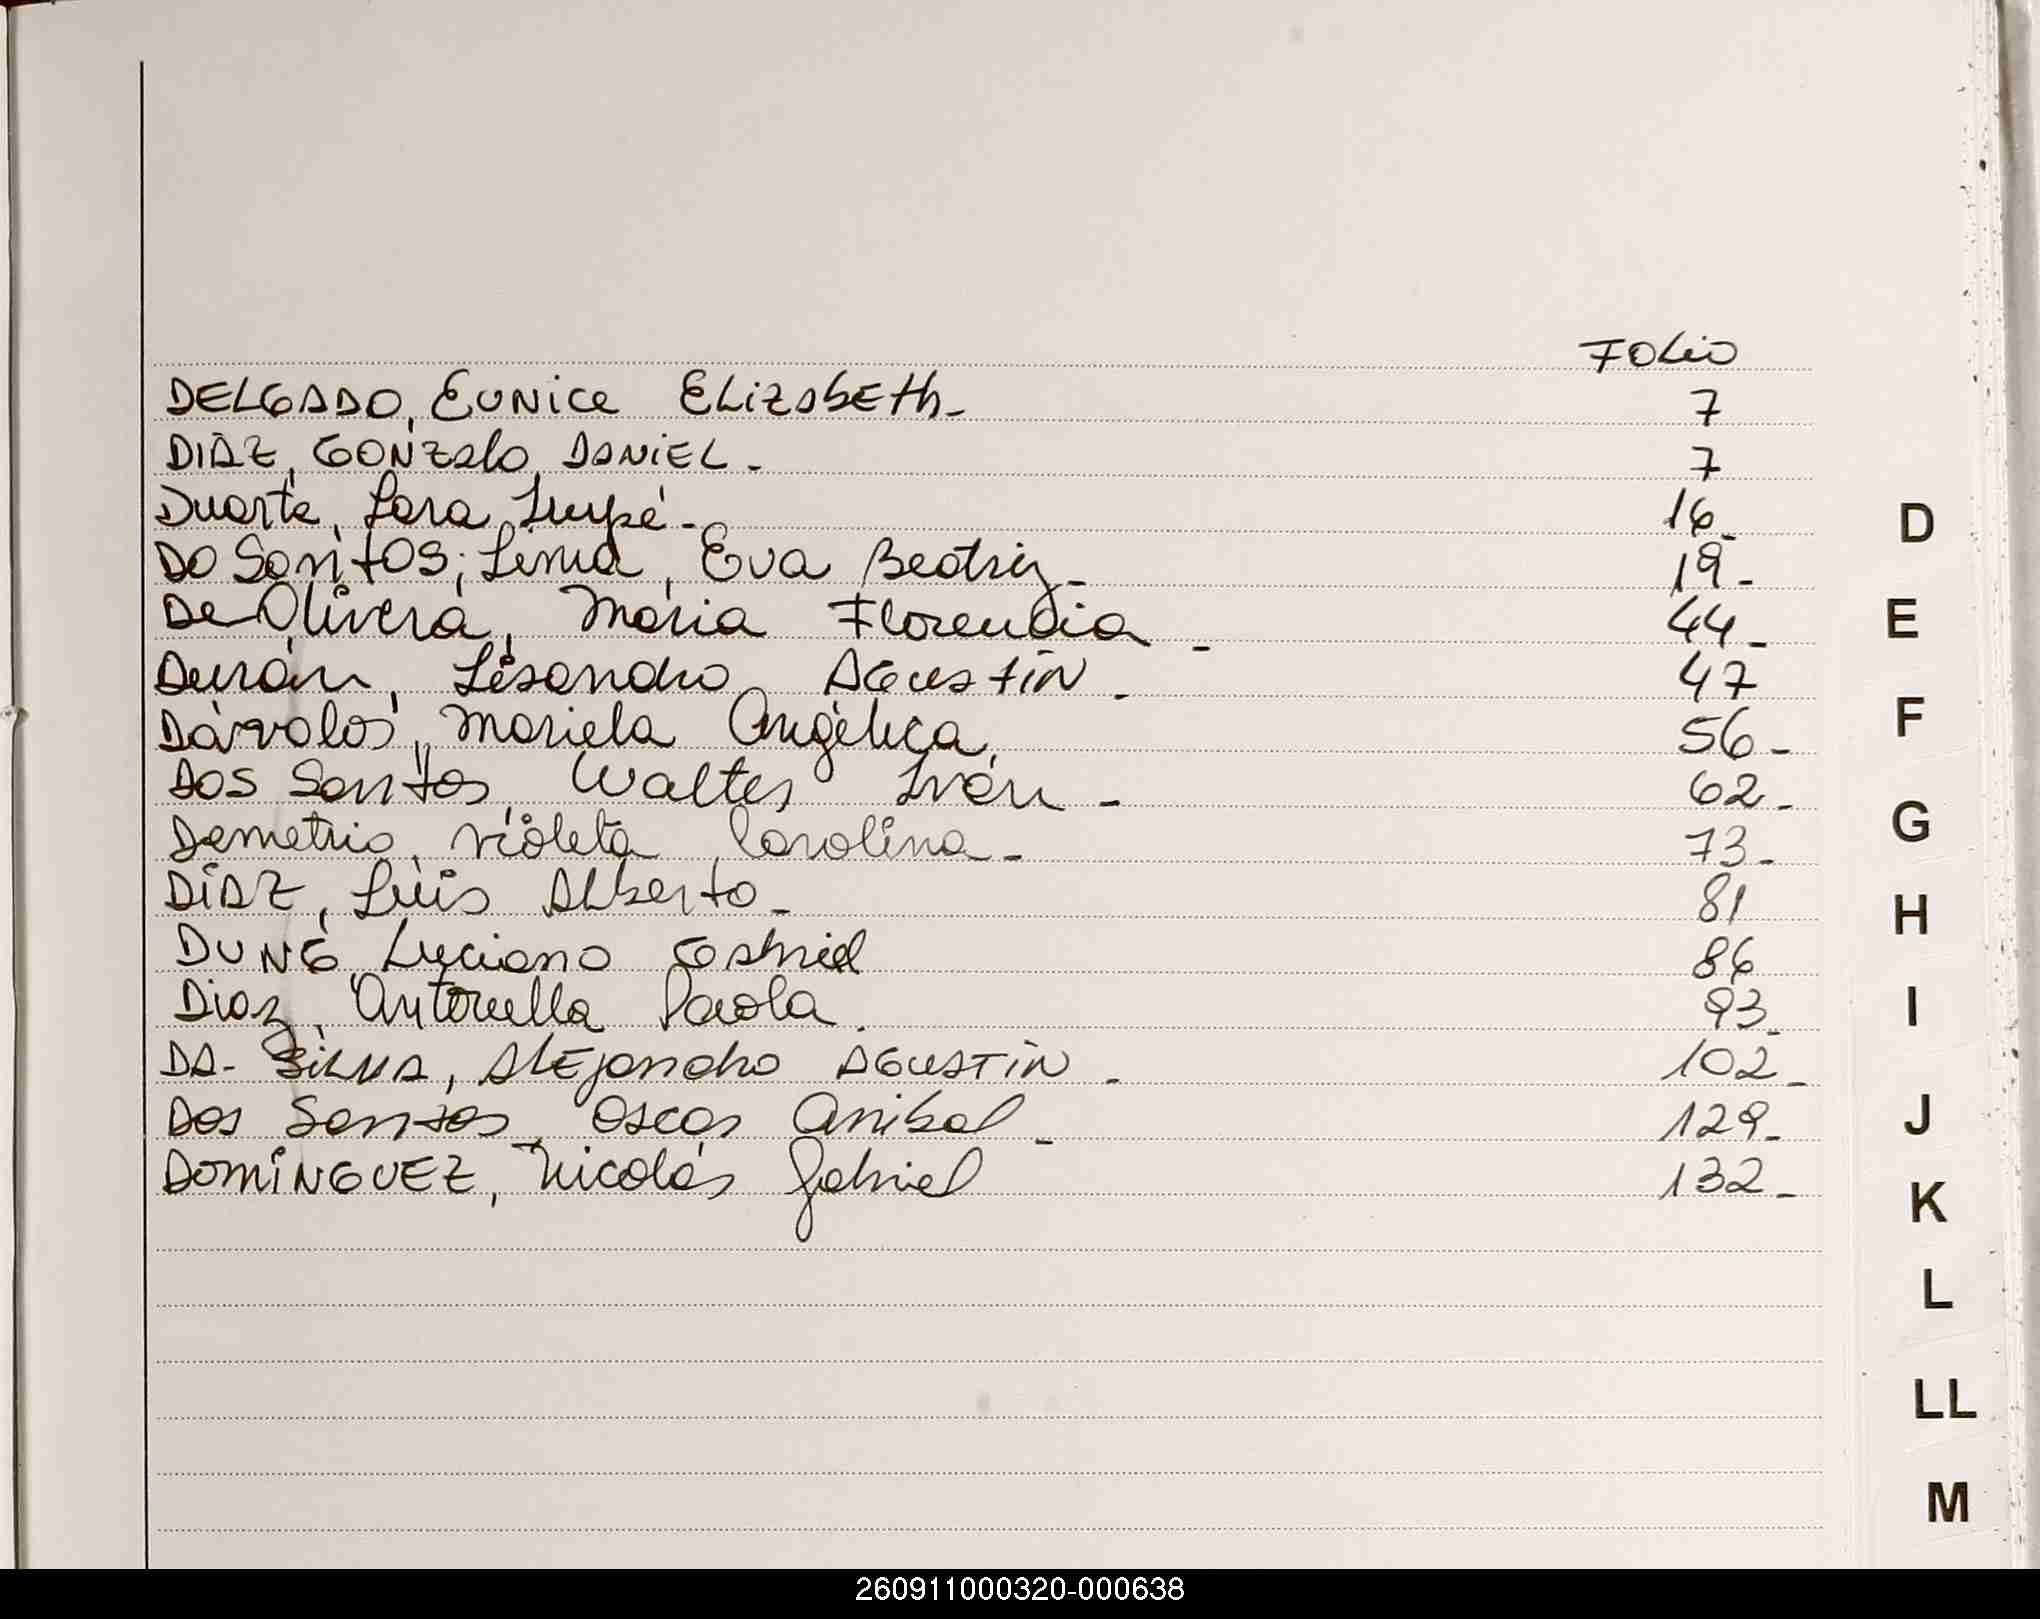 FOLIO
DELGADO, EUNICE ELIZABETH- 7
DIAZ, GONZALO DANIEL- 7
Duarte, Sara Lupé- 16-
DO SANTOS; Lima, Eva Beatriz- 19-
De Olivera, María Florencia- 44-
Durán, Lisandro AGUSTÍN- 47
Dávalos, Mariela Angélica. 56-
DOS Santos, Walter Iván- 62-
Demetrio, Violeta Carolina- 73-
DÍAZ, Luis Alberto- 81
DUNG, Luciano Gabriel 86
Diaz, Antonella Paola. 93-
DA-SILVA, ALEJANDRO AGUSTIN- 102-
Dos Santos, Oscar Anibal- 129-
DOMÍNGUEZ, Nicolás Gabriel 132-
D
E
F
G
H
I
J
K
L
LL
M
260911000320-000638